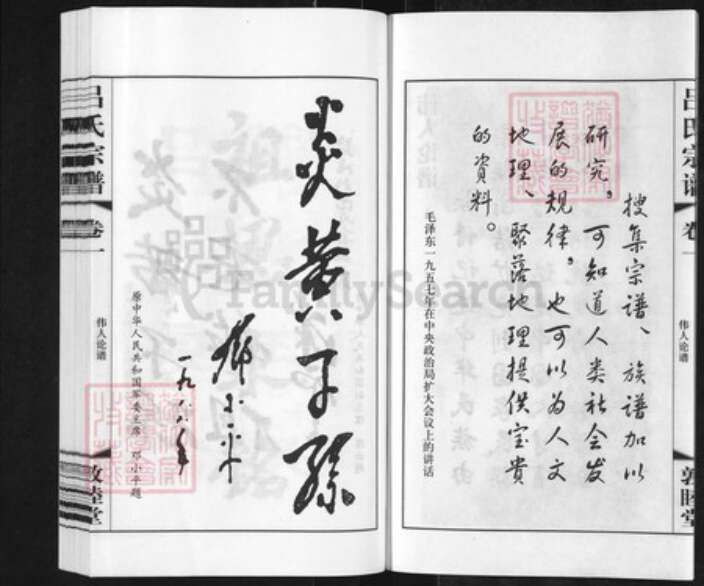 搜集宗谱、族谱加以
研究，可知道人类社会发
展的规律，也可以为人文
地理、聚落地理提供宝贵
的資料。
毛泽东一九五七年在中央政治局扩大会议上的讲话
吕氏宗谱
卷一
伟人论谱
敦睦堂
炎黄子孫
邓小平
一九八六年
原中华人民共和国军委主席 邓小平题
吕氏宗谱
卷一
伟人论谱
敦睦堂
FamilySearch